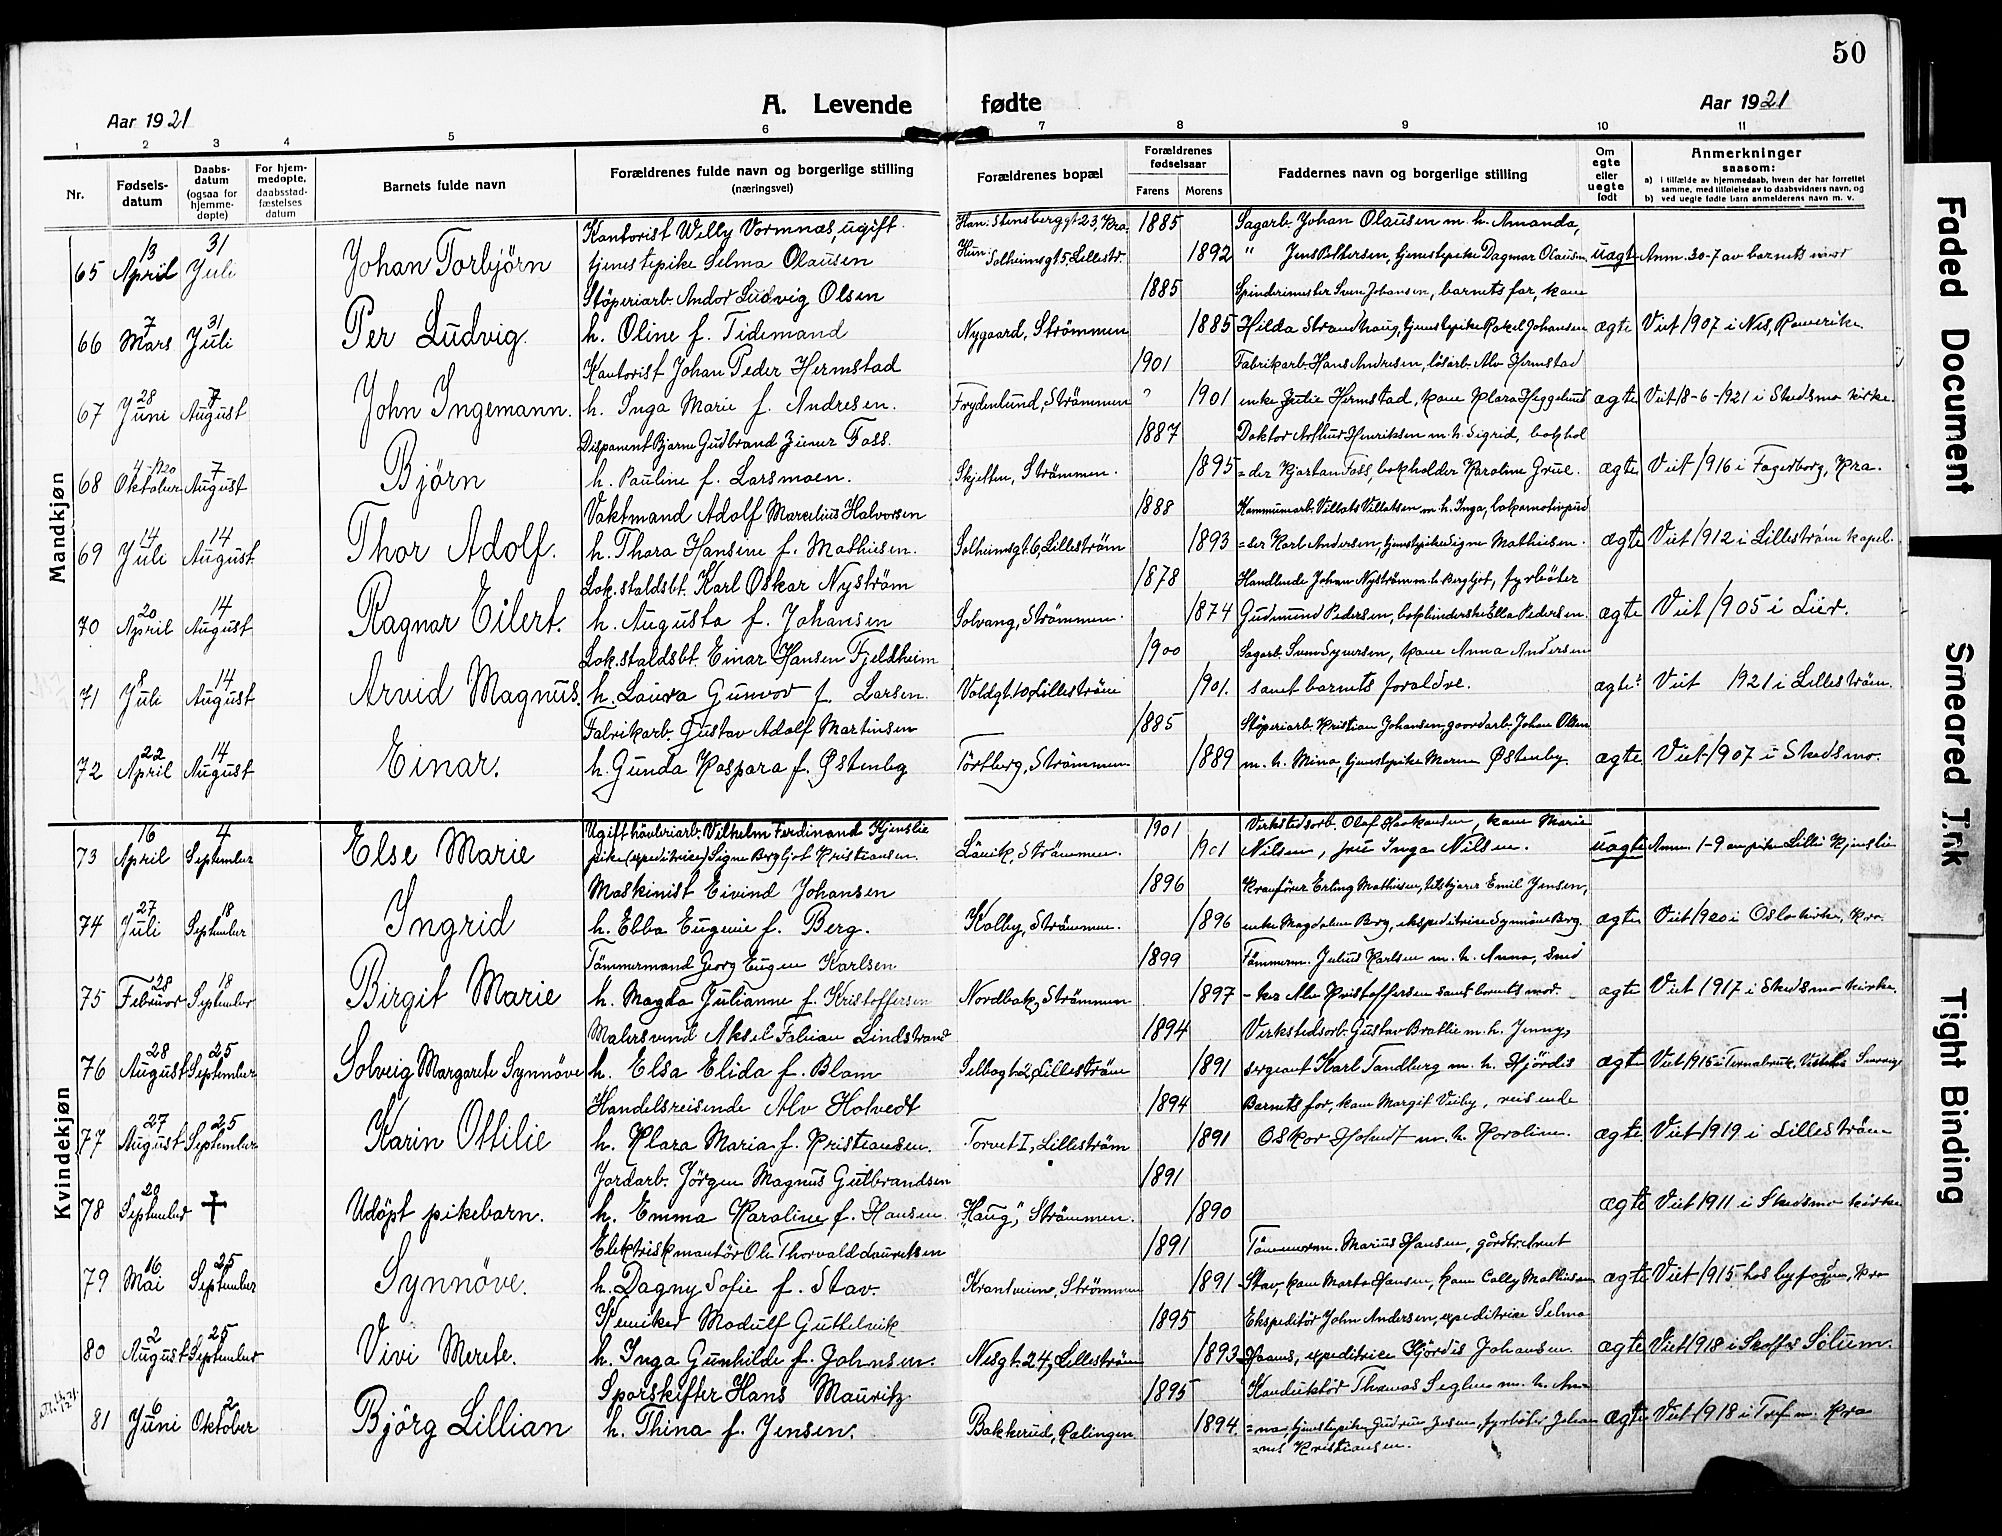 50
Aar 1921
A. Levende fødte
Aar 1921
1 2 3 4 5 6 7 8 9 10 11
Nr.
Fødsels-
datum
Daabs-
datum
(ogsaa for
hjemme-
døpte)
For hjem-
medøpte,
daabsstad-
fæstelses
datum
Barnets fulde navn
Forældrenes fulde navn og borgerlige stilling
(næringsvei)
Forældrenes bopæl
Forældrenes
fødselsaar
Farens Morens
Faddernes navn og borgerlige stilling
Om
egte
eller
uegte
født
Anmerkninger
saasom:
a) i tilfælde av hjemmedaab, hvem der har forrettet
samme, med tilføielse av to daabsvidners navn, og
b) ved uegte fødte barn anmelderens navn m. v.
Mandkjøn
Kontorist Willy Vormnæs, ugift Han: Stensberggt 23, Kra. 1885 Sagarb. Johan Olausen m. h. Amanda,
65 13 April 31 Juli Johan Torbjörn tjenestepike Selma Olausen Hun Solheimsgt 5, Lillestr. 1892 " Jens Pettersen, tjenestepike Dagmar Olausen, uagte Anm. 30-7 av barnets mor
Stöperiarb. Andor Ludvig Olsen 1885 Spinderimester Sven Johansen, barnets far, kone
66 7 Mars 31 Juli Per Ludvig. h. Oline f. Tidemand Nygaard, Strömmen 1885 Hilda Strandhaug, tjenestepike Rakel Johansen ægte Viet 1907 i Nes, Romerike
Kontorist Johan Peder Hermstad 1901 Fabrikarb. Hans Andresen, lösarb. Alv Hermstad
67 28 Juni 7 August John Ingemann. h. Inga Marie f. Andresen. Frydenlund, Strömmen 1901 enke Julie Hermstad, kone Klara Heggelund ægte Viet 18-6-1921 i Skedsmo kirke.
Disponent Bjarne Gudbrand Foss 1887 Doktor Arthur Henriksen m. h. Sigrid, bokhol
68 4-1920 Oktober 7 August Björn h. Pauline f. Larsmoen. Skjetten, Strömmen. 1895 =der Kjartan Foss, bokholder Karoline Grue. ægte Viet 1916 i Fagerborg, Kra.
Vaktmand Adolf Marcelius Halvorsen 1888 Kommunearb. m. h. Inga, lokomotivpud
69 14 Juli 14 August. Thor Adolf. h. Thora Hansine f. Mathiesen. Solheimsgt. 6, Lilleström 1893 =ser Karl Andersen, tjenestepike Signe Mathiesen. ægte Viet 1912 i Lilleström kapel.
Lok. staldsbt. Karl Oskar Nyström 1878 Handlende Johan Nyström m. h. Bergljot, fyrböter
70 20 April 14 August Ragnar Eilert. h. Augusta f. Johansen Solvang, Strömmen. 1874 Gudmund Pedersen, Ella Pedersen. ægte Viet 1905 i Lier.
Lok. staldsbt. Einar Hansen Fjeldheim 1900 Sagarb. Sven Syversen, kone Anna Andersen
71 8 Juli 14 August Arvid Magnus. h. Laura Gunvor f. Larsen. Voldgt. 10, Lilleström 1901. samt barnets foraldre. ægte Viet 1921 i Lilleström.
Fabrikarb. Gustav Adolf Martinsen 1885 Stöperiarb. Kristian Johansen, gaardarb. Johan Olsen
72 22 April 14 August Einar. h. Gunda Kaspara f. Østenby Törtberg, Strömmen 1889 m. h. Mina, tjenestepike Marna Østenby. ægte Viet 1907 i Skedsmo.
Kvindekjøn
Ugift hövleriarb. Vilhelm Ferdinand Kjenslie 1901 Verkstedsarb. Olaf Haakonsen, kone Marie
73 16 April 4 September Else Marie pike (expeditrice) Signe Bergljot Kristiansen. Lövik, Strömmen. 1901 Nilsen, frue Inga Nilsen. uagte Anm. 1-9 av piken Lilli Kjenslie
Maskinist Eivind Johansen 1896 Kranförer Erling Mathisen, Emil Jensen,
74 27 Juli 18 September Ingrid h. Ebba Eugenie f. Berg. Kolby, Strömmen. 1896 enke Magdalene Berg, ekspeditrise Synnöve Berg. ægte Viet 1920 i Oslo kirke, Kra
Tömmermand Georg Eugen Karlsen 1899 Tömmerm. Julius Karlsen m. h. Anna, smed
75 28 Februar 18 September Birgit Marie h. Magda Julianne f. Kristoffersen Nordbak, Strömmen 1897 Alv Kristoffersen samt barnets mor. ægte Viet 1917 i Skedsmo kirke.
Malersvend Aksel Fabian Lindstrand 1894 Verkstedsarb. Gustav Bratlie m. h. Jenny,
76 28 August 25 September Solveig Margarete Synnöve h. Elsa Elida f. Blom Selbogt. 2, Lilleström 1891 sergeant Karl Tandberg m. h. Hjördis ægte Viet 1915 i
Handelsreisende Alv Holvedt 1894 Barnets far, kone Margit Veiby, reisende
77 27 August 25 September Karin Ottilie h. Klara Maria f. Kristiansen. Torvet I, Lilleström 1891 Oskar Holvedt m. h. Karoline. ægte Viet 1919 i Lilleström
Jordarb. Jörgen Magnus Gulbrandsen 1891
78 20 September † Udöpt pikebarn. h. Emma Karoline f. Hansen. "Haug", Strömmen. 1890 ægte Viet 1911 i Skedsmo kirke
Elektriskmontör Ole Thorvald Lauretsen 1891 Tömmerm. Marius Hansen, Arnt
79 16 Mai 25 September Synnöve. h. Dagny Sofie f. Stav. Kransveien, Strömmen 1891 Stav, kone Marta Hansen, kone Cally Mathiesen ægte Viet 1915 hos byfogden, Kra
Kemiker Modulf Guttelvik 1895 Ekspeditör John Andersen, expeditrice Selma
80 2 August 25 September Vivi Merete. h. Inga Gunhilde f. Johnsen. Nesgt. 24, Lilleström 1893 expeditrice Hjördis Johansen. ægte Viet 1918 i Solum.
Sporskifter Hans Mauritz 1895 Konduktör Thomas Seglen m. h. An=
81 6 Juni 2 Oktober Björg Lillian h. Thina f. Jensen. Bakkerud, Rælingen 1894. =na, tjenestepike Gudrun Jensen, fyrböter Johan ægte Viet 1918 i Kra
=nes Kristiansen.
Faded Document
Smeared Ink
Tight Binding